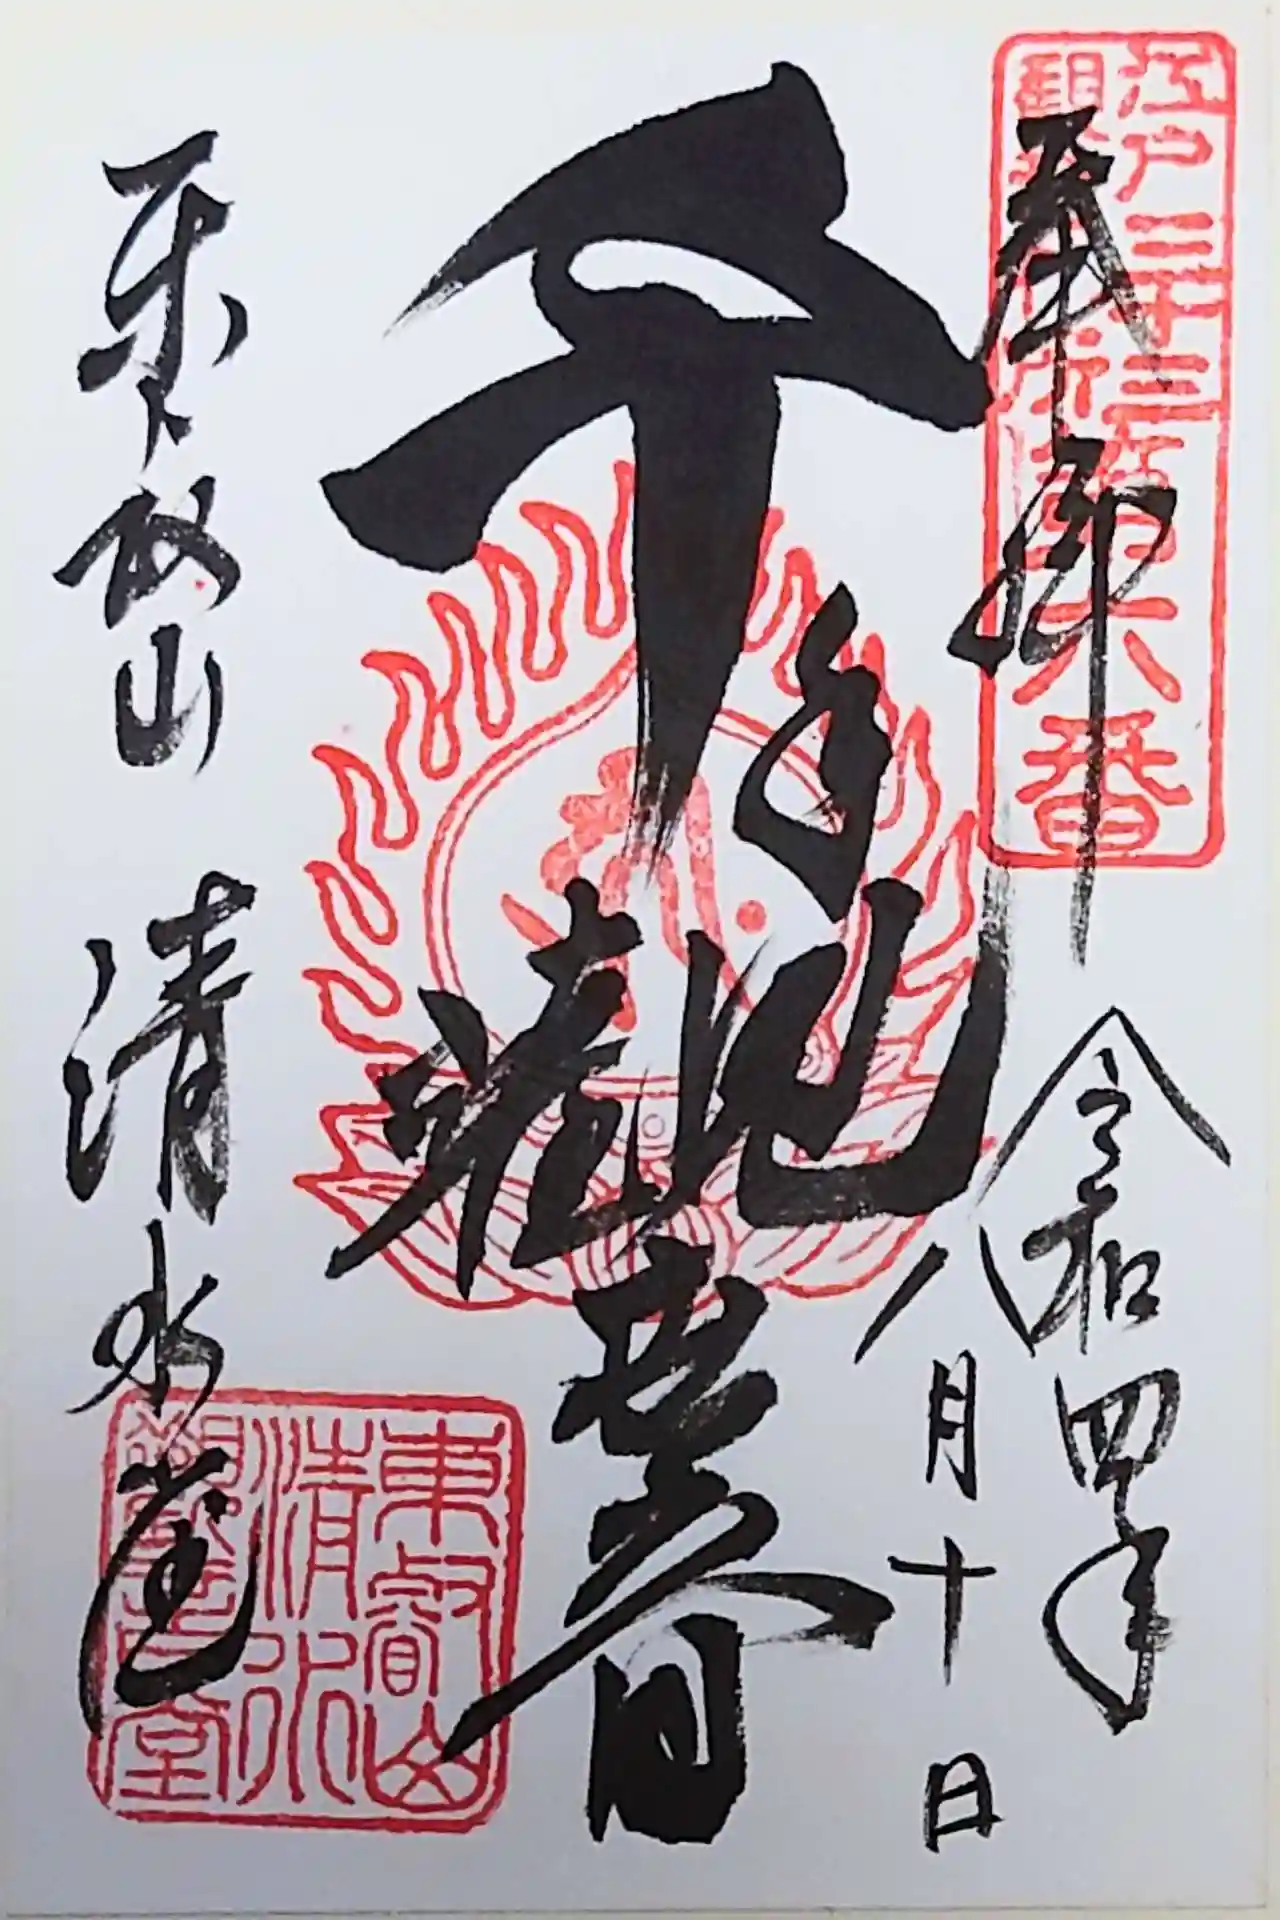 江戸三十三
観音札所第六番
奉拝
令和四年
八月十日
千手観世音
東叡山
清水
観音堂
東叡山 清水堂